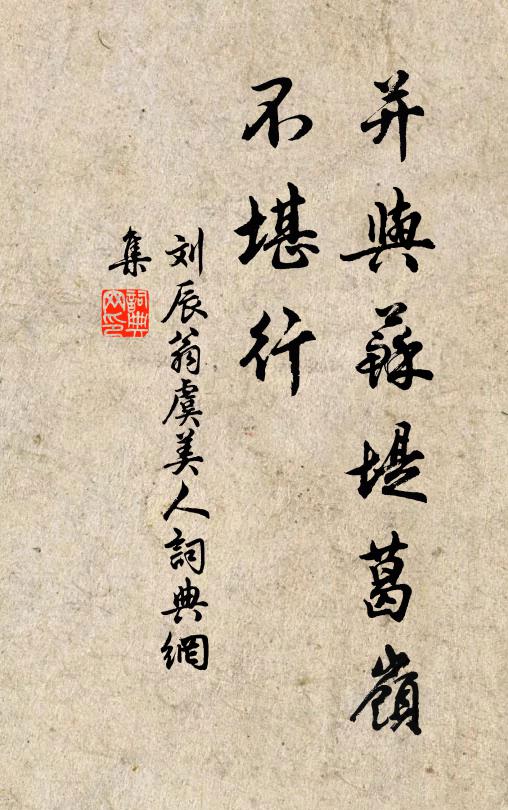 并與蘇堤葛嶺
不堪行
刘辰翁虞美人詞典網
集
詞典
网印